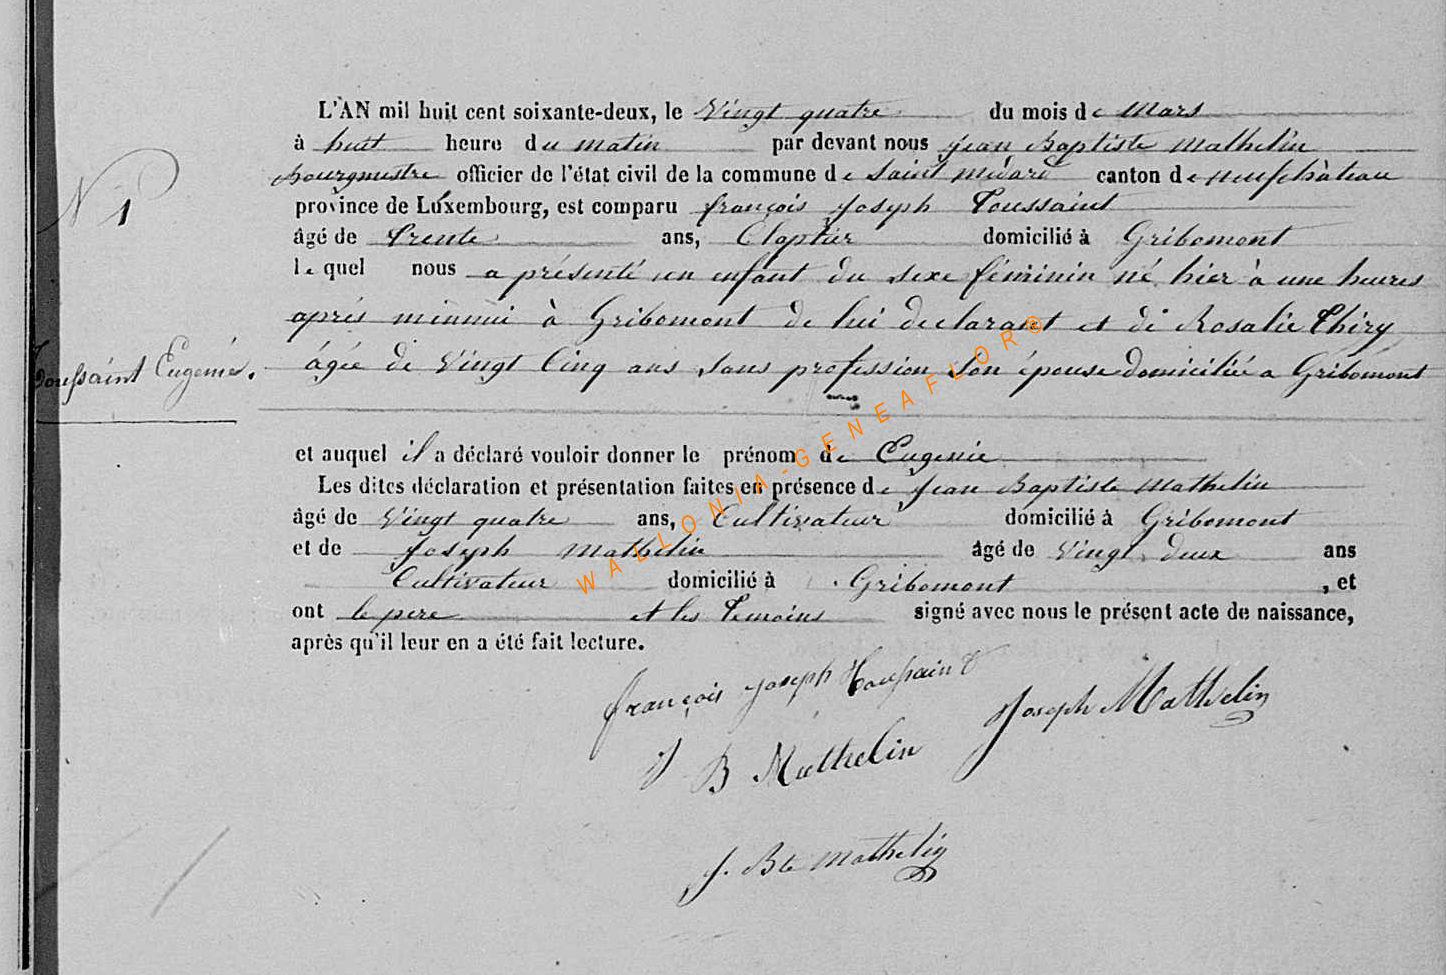 L'AN mil huit cent soixante-deux, le Vingt quatre du mois de Mars
à huit heure du matin par devant nous Jean Baptiste Mathelin
Bourgmestre officier de l'état civil de la commune de Saint Médard canton de neufchâteau
N 1
province de Luxembourg, est comparu françois Joseph Toussaint
âgé de trente ans, domicilié à Gribomont
le quel nous a présenté un enfant du sexe féminin né hier à une heures
après minnui à Gribomont de lui declarant et de Rosalie Thiry
Toussaint Eugenie.
âgée de Vingt Cinq ans sans profession son épouse domiciliée a Gribomont
et auquel il a déclaré vouloir donner le prénom de Eugenie
Les dites déclaration et présentation faites en présence de Jean Baptiste Mathelin
âgé de Vingt quatre ans, Cultivateur domicilié à Gribomont
et de Joseph Mathelin âgé de Vingt deux ans
Cultivateur domicilié à Gribomont , et
ont le pere et les temoins signé avec nous le présent acte de naissance,
après qu'il leur en a été fait lecture.
françois joseph toussaint
Joseph Mathelin
J B Mathelin
J. Bte Mathelin
WALLONIA-GENEAFLOR®